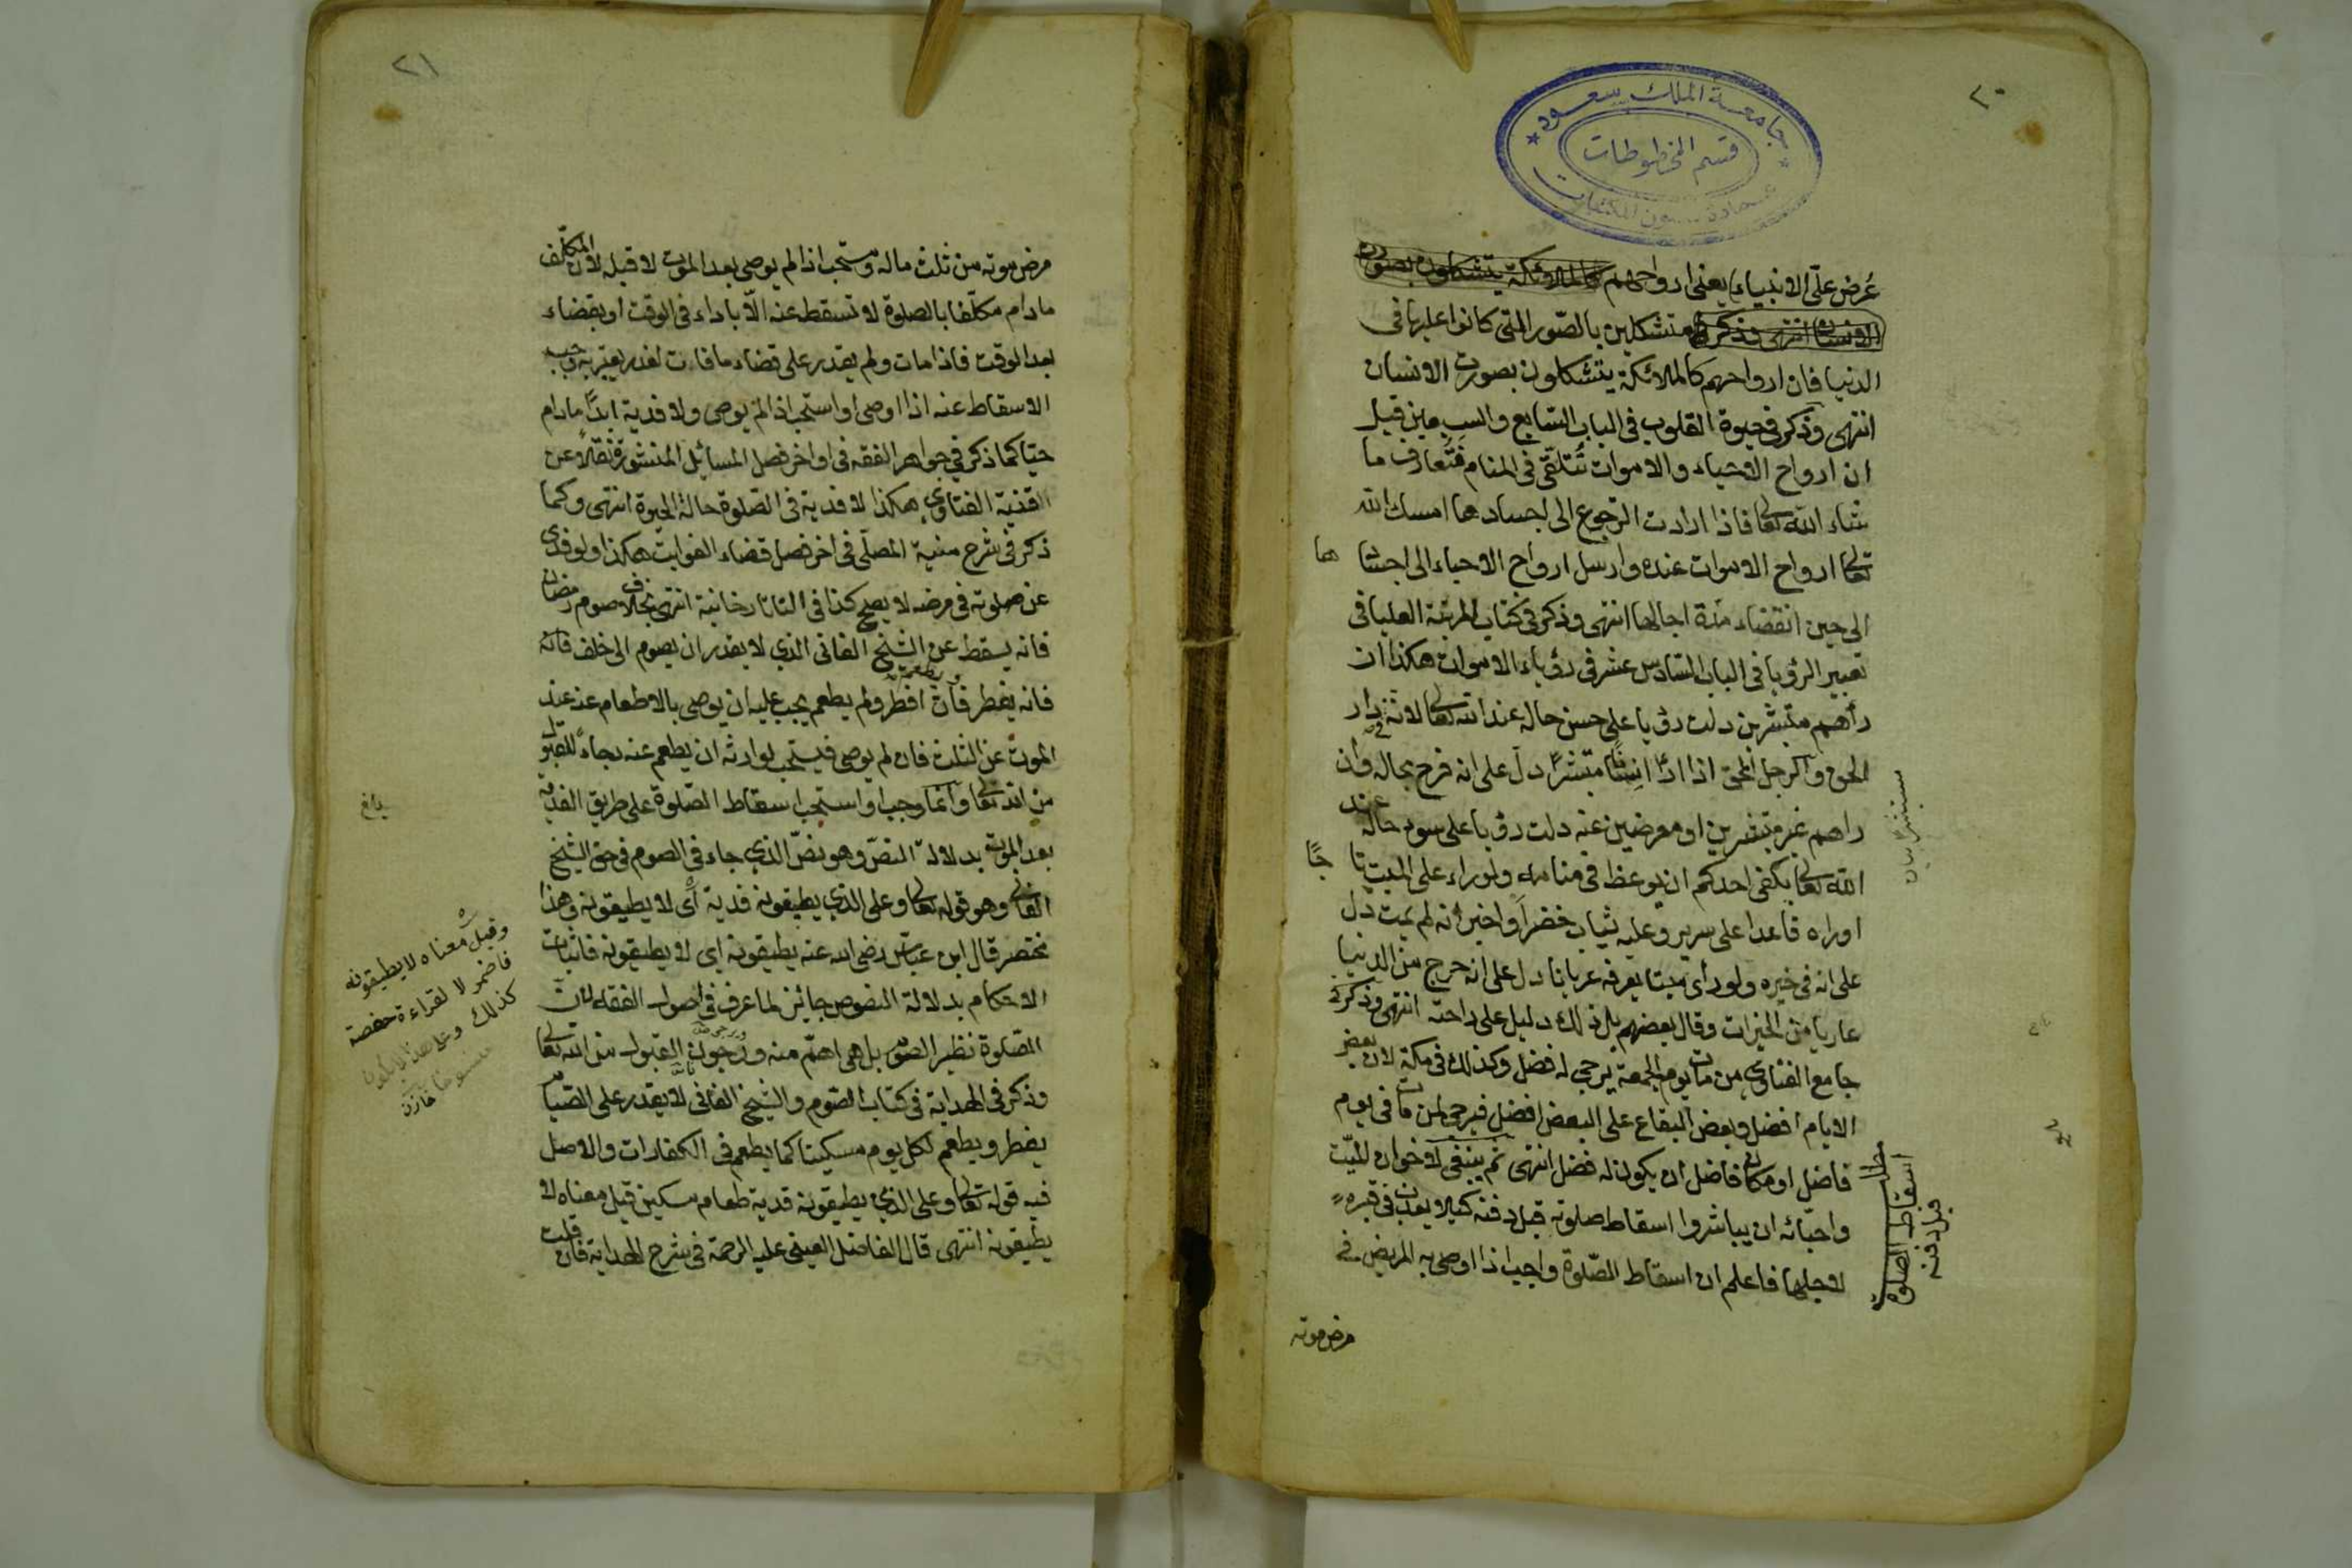 ٢٠
جامعة الملك سعود
قسم المخطوطات
عمادة شؤون المكتبات
عُرض علىّ الانبياء يعنى ارواحهم كالملائكة يتشكلون بصورة
الانسان انتهى وذكر فى متشكلين بالصّور التى كانوا عليها فى
الدنيا فان ارواحهم كالملائكة يتشكلون بصورت الانسان
انتهى وذكر فى حيوة القلوب فى الباب السّابع والسبعين قيل
ان ارواح الاحياء والاموات تتلقّى فى المنام فتتعارف ما
شاء الله تعالى فاذا ارادت الرجوع الى اجسادها امسك الله
تعالى ارواح الاموات عنده وارسل ارواح الاحياء الى اجسا
الى حين انقضاء مدّة اجالها انتهى وذكر فى كتاب المرتبة العليا فى
تعبير الرؤيا فى الباب السّادس عشر فى رؤياء الاموات هكذا ان
رأهم متبشرين دلت رؤيا على حسن حاله عند الله تعالى لانه فى دار
الحق والرجل الحىّ اذا انسانًا متبشرًا دلّ على انه فرح بحاله وان
راهم غير متبشرين او معرضين عنه دلت رؤيا على سوء حاله عند
الله تعالى يكفى احدكم ان يوعظ فى منامه ولوراء على الميت
اوراه قاعدا على سرير وعليه ثياب خضرا واخبر انه لم يمت دلّ
على انه فى خيره ولو رأى ميتا يعرفه عريانا دل على انه خرج من الدنيا
عاريا من الخيرات وقال بعضهم بل ذلك دليل على راحته انتهى وذكر فى
جامع الفتاوى من مات يوم الجمعة يرجى له فضل وكذلك فى مكة لان بعض
الايام افضل وبعض البقاع على البعض افضل فيرجى لمن مات فى يوم
فاضل او مكان فاضل ان يكون له فضل انتهى ثم ينبغى لاخوان الميّت
واحبّائه ان يباشروا اسقاط صلوته قبل دفنه كيلا يعذب فى قبره
لاجلها فاعلم ان اسقاط الصّلوة واجب اذا اوصى به المريض فى
مرض موته
ها
اسقاط الصلوة
قبل دفنه
٢١
مرض موته من ثلث ماله ومستحب اذا لم يوصى بعد الموت لا قبله لان المكلّف
مادام مكلّفا بالصلوة لا تسقط عنه الّا باداء فى الوقت او بقضاء
بعد الوقت فاذا مات ولم يقدر على قضاء ما فات لعذر يعتبر به وجب
الاسقاط عنه اذا اوصى او استحب اذا لم يوصى ولا فدية ابدًا مادام
حيّا كما ذكر فى جواهر الفقه فى اواخر فصل المسائل المنثورة نقلًا عن
القنية الفتاوى هكذا لا فدية فى الصّلوة حالة الحيوة انتهى وكما
ذكر فى شرح منية المصلّى فى اخر فصل قضاء الفوايت هكذا ولو فدى
عن صلوته فى مرضه لا يصح كذا فى التاتارخانية انتهى بخلاف صوم رمضان
فانه يسقط عن الشيخ الفانى الذى لا يقدر ان يصوم الى خلف فانه
فانه يفطر ويطعم فان افطر ولم يطعم يجب عليه ان يوصى بالاطعام عنه عند
الموت عن الثلث فان لم يوصى فيستحب لوارثه ان يطعم عنه رجاءً للقبول
من الله تعالى وانما وجب او استحب اسقاط الصّلوة على طريق الفدية
بعد الموت بدلالة النصّ وهو نصّ الذى جاء فى الصوم فى حق الشيخ
الفانى وهو قوله تعالى وعلى الذى يطيقونه فدية اى لا يطيقونه وهذا
مختصر قال ابن عباس رضى الله عنه يطيقونه اى لا يطيقونه فاثبات
الاحكام بدلالة النصوص جائز لما عرف فى اصول الفقه لان
الصّلوة نظير الصّوم بل هى اهمّ منه ونرجون القبول من الله تعالى
وذكر فى الهداية فى كتاب الصّوم والشيخ الفانى لا يقدر على الصّيام
يفطر ويطعم لكل يوم مسكينا كما يطعم فى الكفارات والاصل
فيه قوله تعالى وعلى الذى يطيقونه فدية طعام مسكين قيل معناه لا
يطيقونه انتهى قال الفاضل العينى عليه الرحمة فى شرح الهداية فان قلت
بلغ
وقيل معناه لا يطيقونه
فاضمر لا لقراءة حفصة
كذلك وعلى هذا لا يكون
منسوخا